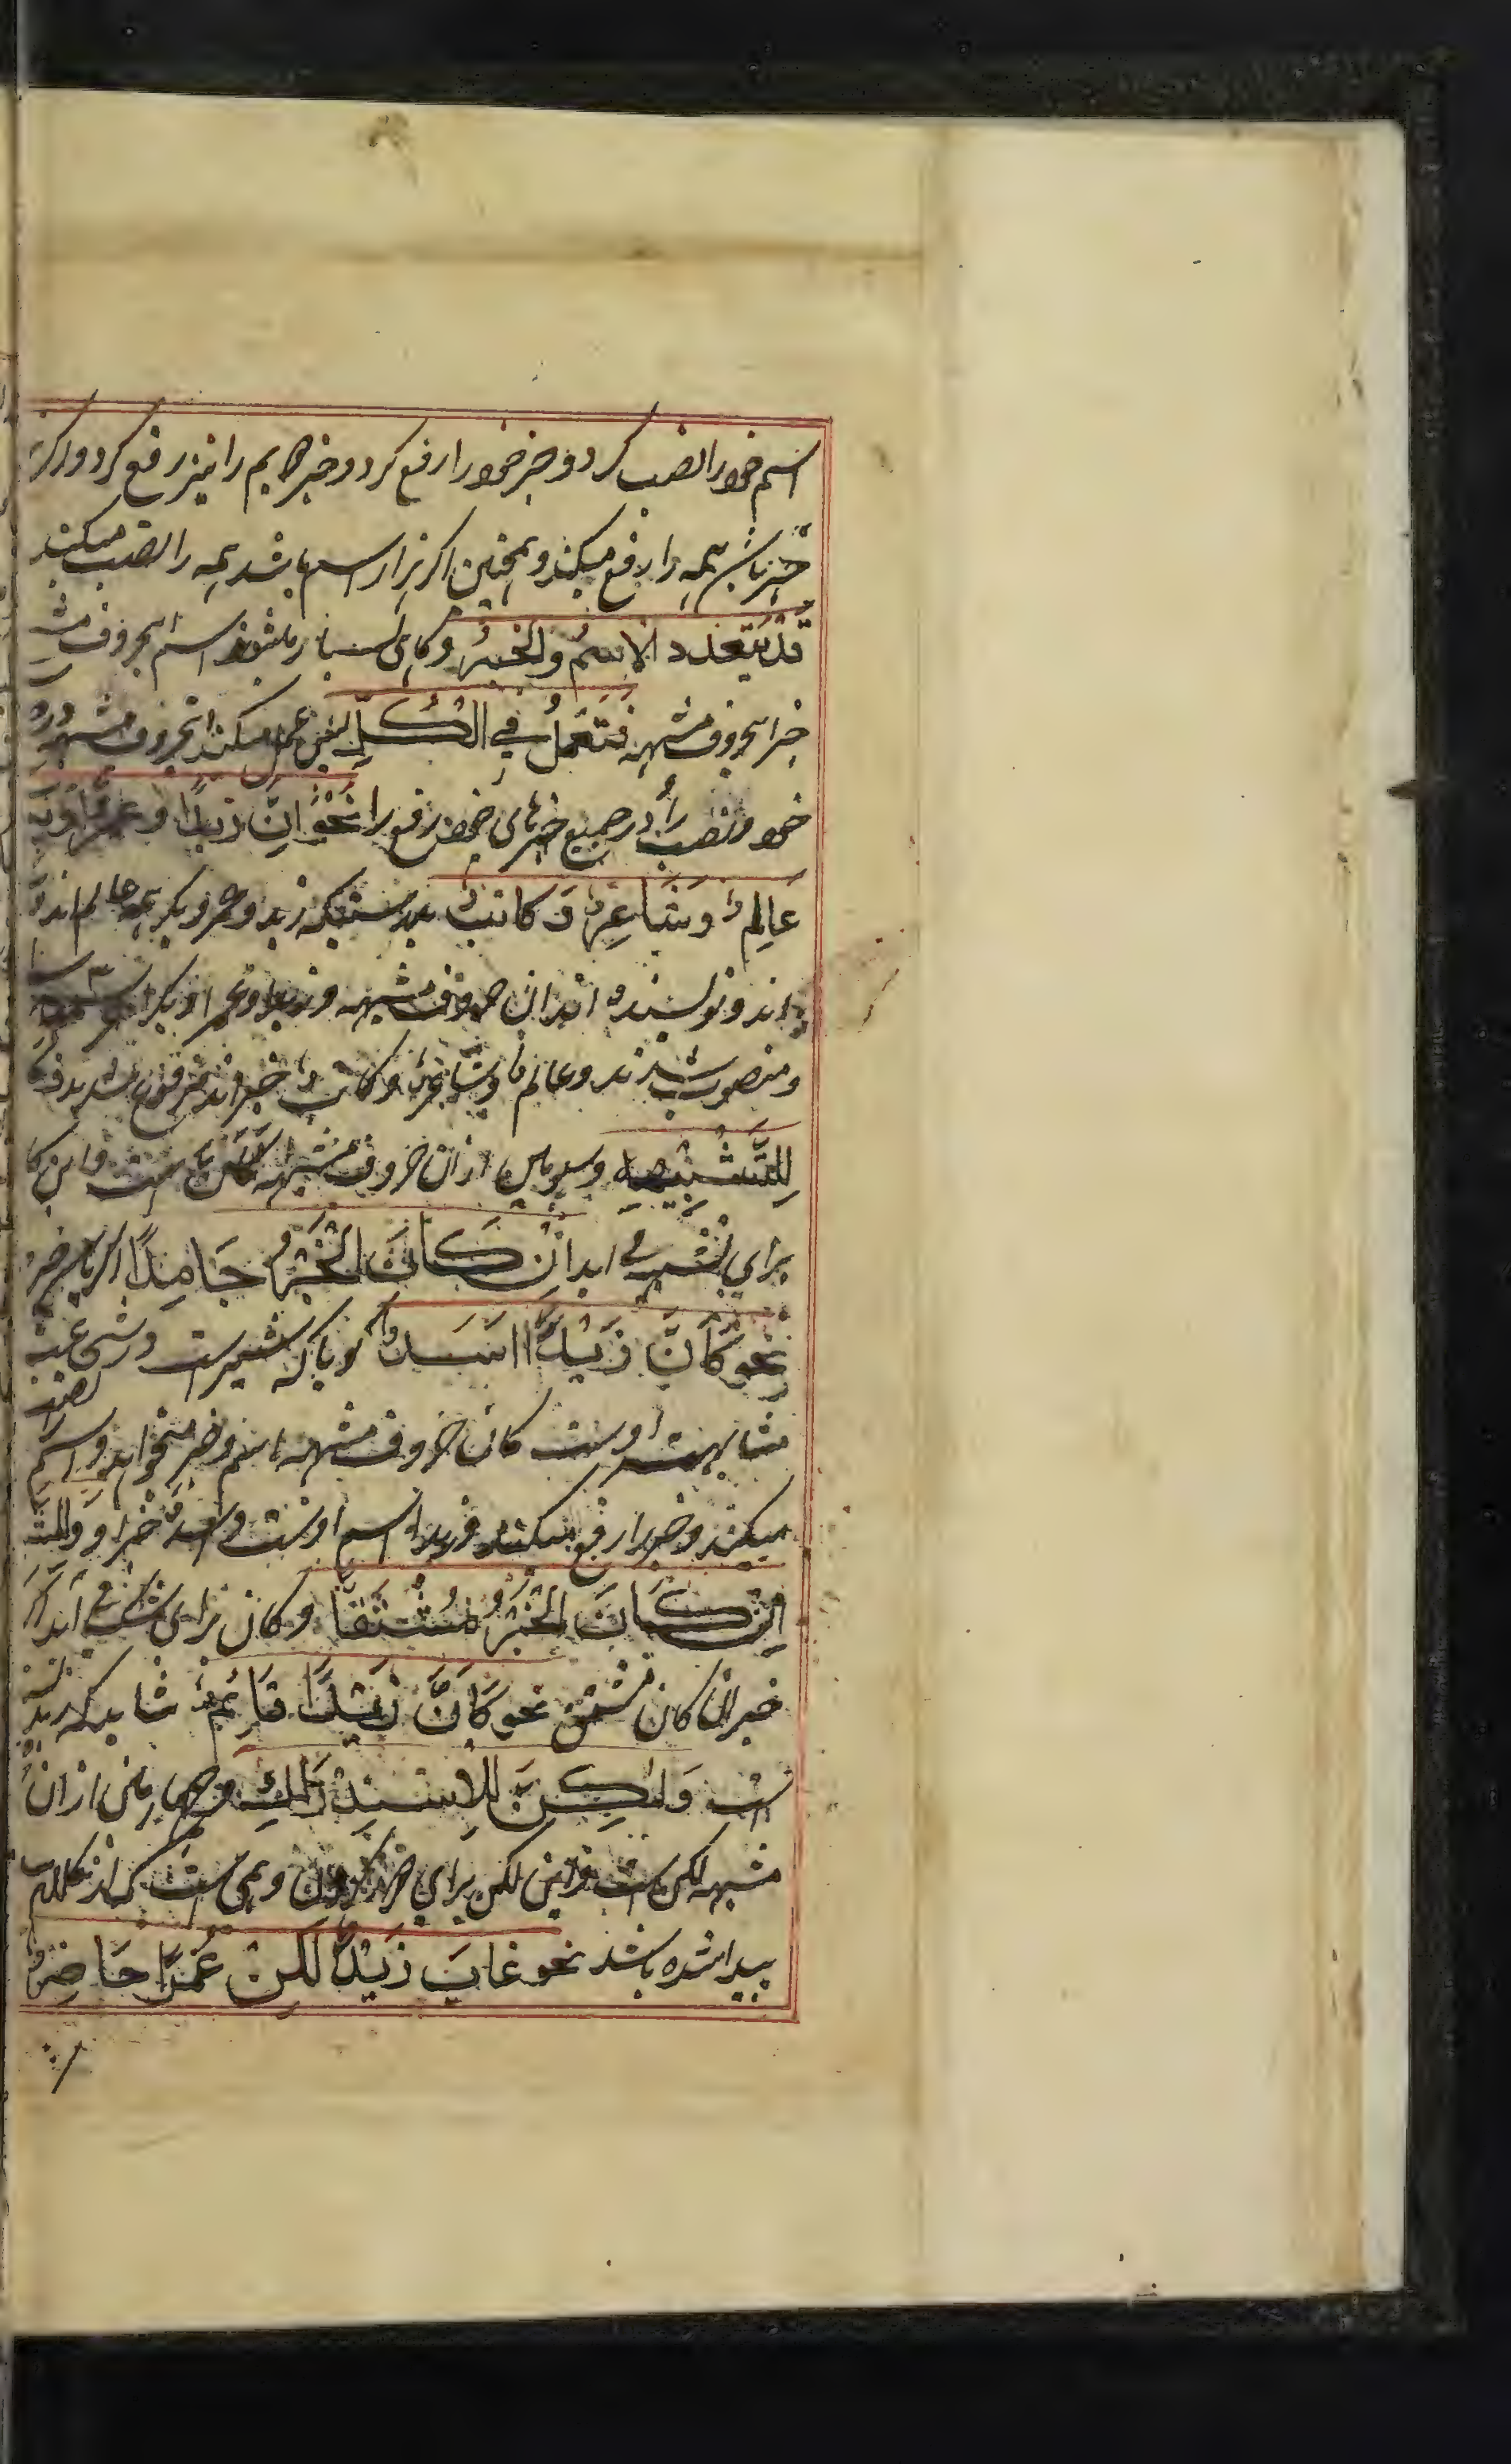 اسم خود را نصب کرد و خبر خود را رفع کرد و خبر دایم را نیز رفع کرد و اگر
خبر باشد همه را رفع میکند و همچنین اگر هزار اسم باشد همه را نصب میکند
قَدْ یَتَعَدَّدُ الاِسْمُ وَالخَبَرُ و گاهی بسیار میشوند اسم این حروف مشبه
خبر این حروف مشبهه فَتَعْمَلُ فِي الْكُلِّ پس عمل میکند این حروف مشبهه در
خود و نصب را در جمیع خبرهای خود رفع را نَحْوُ اِنَّ زَیْدًا وَ عَمْرًا وَ
عَالِمٌ وَ شَاعِرٌ وَ كَاتِبٌ بدرستیکه زید و عمرو و بکر همه عالم اند و
اند و نویسنده اند ان حروف مشبهه و زیدا و عمرا و بکرا
و منصوب شدند و عالمٌ و شاعرٌ و کاتبٌ خبر اوند مرفوع شدند و
لِلتَّشْبِیْهِ و سیومین از ان حروف مشبهه کَاَنَّ است و این
برای تشبیه می اید اِنْ كَانَ الخَبَرُ جَامِدًا اگر باشد خبر
نحو كَاَنَّ زَیْدًا اَسَدٌ گویا که شیرست در شجاعت
مشابهت اوست کان حروف مشبهه اسم و خبر میخواهد و اسم را نصب
میکند و خبر را رفع میکند زیدا اسم اوست و اسدٌ خبر او وَ
اِنْ كَانَ الخَبَرُ مُشْتَقًّا و کان برای شک می آید اگر
خبر ان کان مشتق نحو كَاَنَّ زَیْدًا قَائِمٌ شاید که زید
است وَلٰكِنَّ لِلاِسْتِدْرَاكِ و چهارمی از ان
مشبهه لکن است و این لکن برای کردن وهمی است که از کلام
پیدا شده باشد نحو غَابَ زَیْدٌ لٰكِنَّ عَمْرًا حَاضِرٌ